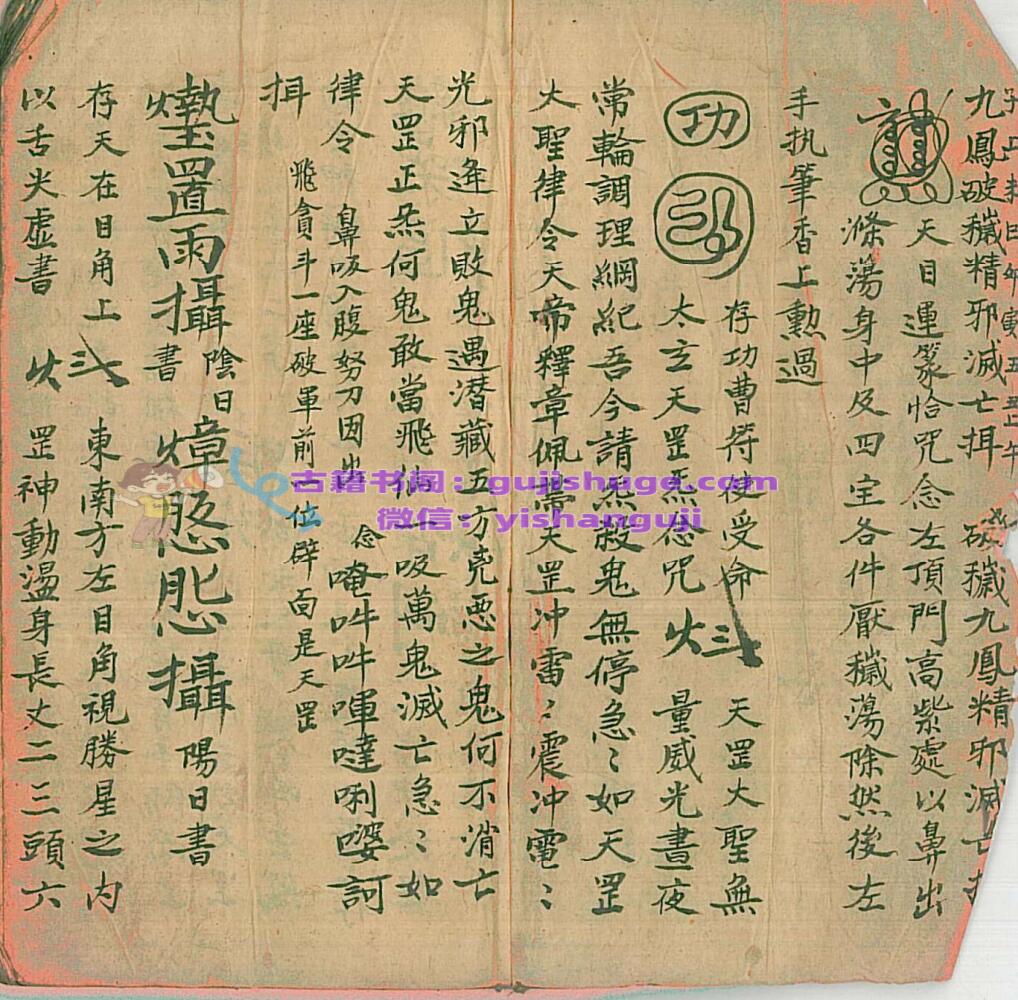 九鳳破穢精邪滅亡揖 破穢九鳳精邪滅亡
天目運篆恰咒念左頂門高紫處以鼻出
滌蕩身中及四宔各件厭穢蕩除然後左
手執筆香上勲過
功
存功曹符使受命 天罡大聖無
太玄天罡炁 咒 量威光晝夜
常輪調理綱紀吾今請炁殺鬼無停急〻如天罡
大聖律令天帝釋章佩帶天罡冲雷〻震冲電〻
光邪逄立敗鬼遇潜藏五方兇恶之鬼何不消亡
天罡正炁何鬼敢當飛仙一吸萬鬼滅亡急〻如
律令 鼻吸入腹努刀因出 念唵吽吽㖸噠唎㜑訶
揖 飛貪斗一座破軍前一位辟面是天罡
置雨攝 陰日書 攝 陽日書
存天在目角上 東南方左目角視勝星之内
以舌尖虚書 罡神動盪身長丈二三頭六
古籍书阁：gujishuge.com
微信：yishanguji